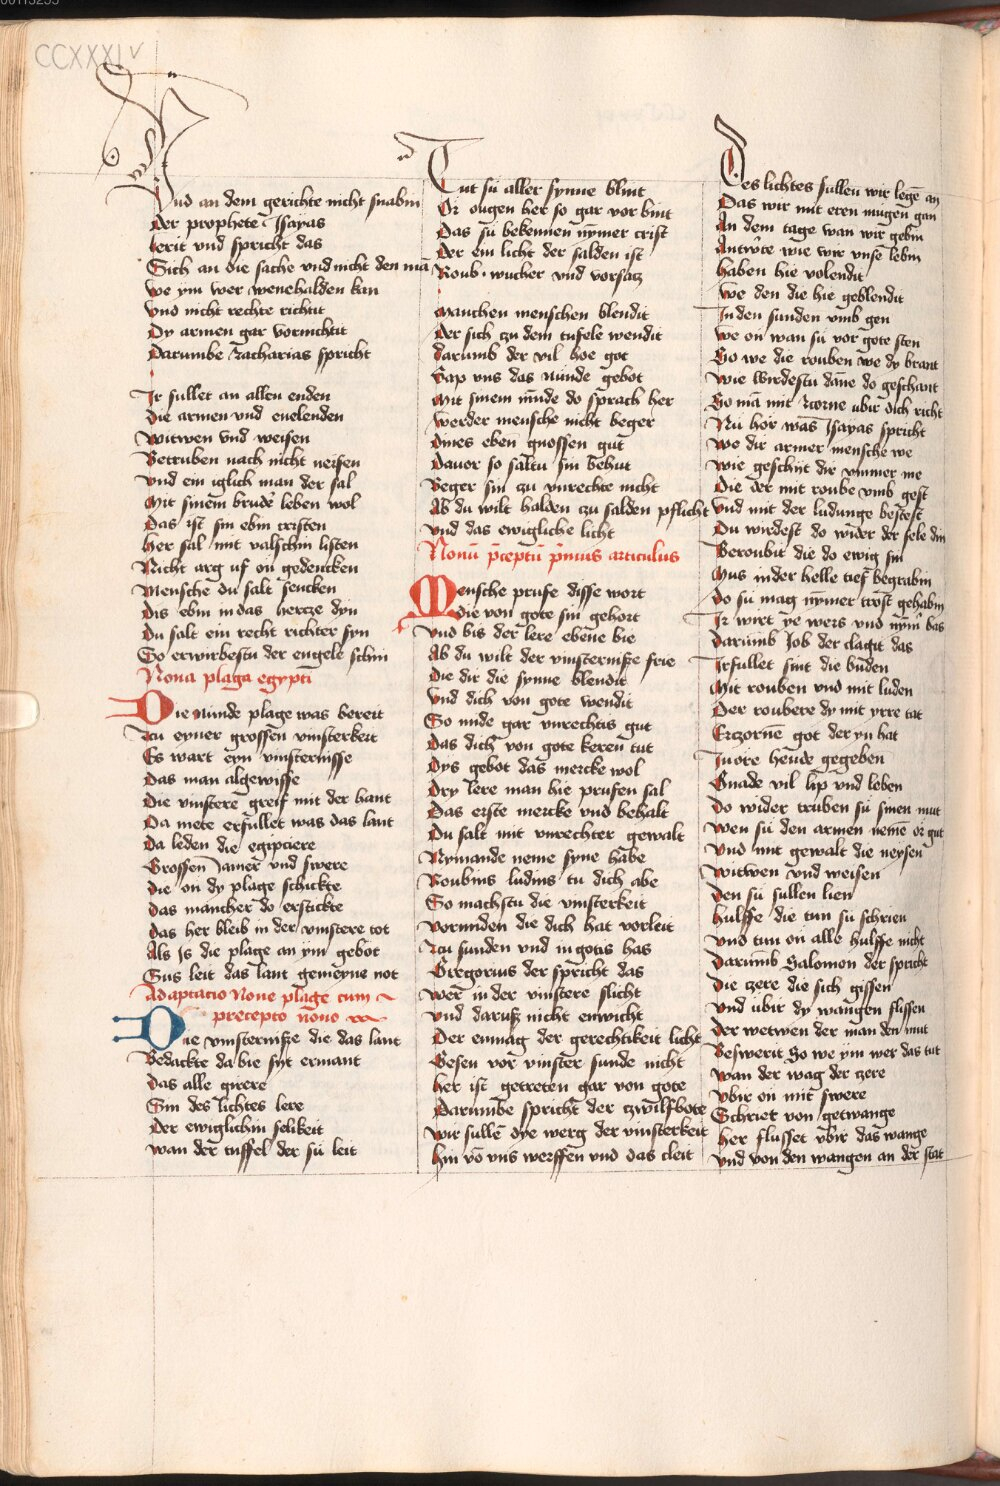 CCXXXI v
Vnd an dem gerichte nicht snabin
Der prophete Jsayas
lerit vnd spricht das
Sich an die sache vnd nicht den mā
we ym wer wenehalden kan
vnd nicht rechte richtit
Dy armen gar vornichtit
Darumbe zacharias spricht
Jr sullet an allen enden
Die armen vnd enelenden
witwen vnd weisen
Betruben nach nicht neisen
vnd ein iglich man der sal
Mit sinem brude leben wol
Das ist sin ebin cristen
her sal mit valschin listen
Nicht arg uf on gedencken
Mensche du salt sencken
Dis ebin in das hercze dyn
Du salt ein recht richter syn
So erwirbestu der engele schin
Nona plaga egypti
Die nūnde plage was bereit
zcu eyner grossen vinsterkeit
Es wart eyn vinsternisse
Das man algewisse
Die vinstere greif mit der hant
Da mete erfullet was das lant
Da leden die egipciere
Grossen Jamer vnd swere
die on dy plage schickte
das mancher do erstickte
das her bleib in der vinstere tot
Als Js die plage an ym gebot
Sus leit das lant gemeyne not
Adaptacio None plage cum
precepto nono
Die vinsternisze die das lant
Bedackte da bie syt ermant
das alle girere
Sin des lichtes lere
Der ewiglichin selikeit
wan der tuffel der su leit
Tut su aller synne blint
Or ougen her so gar vor bint
Das su bekennen nymer crist
Der ein licht der salden ist
Roub wucher vnd vorsatz
Manchen menschen blendit
Der sich zu dem tufele wendit
darumb der vil hoe got
Gap vns das nunde gebot
Mit sinem munde do sprach her
werder mensche nicht beger
dines eben gnossen gut
dauor so saltu sin behut
Beger sin zu vnrechte nicht
Ab du wilt halden zu salden pflicht
vnd das ewigliche licht
Nonū p̄ceptū p̄mus articulus
Mensche prufe disse wort
die von gote sin gehort
vnd bis der lere ebene bie
Ab du wilt der vinsternisze frie
die dir die synne blendit
vnd dich von gote wendit
So mide gar vnrechtis gut
Das dich von gote keren tut
Dys gebot das mercke wol
Dry lere man hie prufen sal
Das erste mercke vnd behalt
Du salt mit vnrechter gewalt
Nymande neme syne habe
Roubins ludins tu dich abe
So machstu die vinsterkeit
vormiden die dich hat vorleit
zcu sunden vnd in gotis has
Gregorius der spricht das
wer in der vinstere slicht
vnd darusz nicht enwicht
Der enmag der gerechtikeit licht
Gesen vor vinster sunde nicht
her ist getreten gar von gote
Darumbe spricht der zwilfbote
wir sullē dye werg der vinsterkeit
hin vō vns werffen vnd das cleit
Des lichtes sullen wir legē an
Das wir mit eren mugen gan
An dem tage wan wir gebin
Antw̄te wie wir vnse lebin
haben hie volendit
we den die hie geblendit
Jn den sunden vmb gen
we on wan su vor gote sten
So we die rouben we dy brant
wie wirdestu dāne do geschant
So mā mit zcorne ubir dich richt
Nu hor was Jsayas spricht
we dir armer mensche we
wie geschit dir ymmer me
Die der mit roube vmb gest
vnd mit der ludunge bestest
Du wirdest do wider der sele din
Beroubit die do ewig sin
Mus in der helle tief begrabin
do su mag nymer trost gehabin
Jr wirt ye wers vnd nym̄ bas
darumb Job der clagit das
Jrfullet sint die buden
Mit rouben vnd mit luden
Der roubere dy mit yrre tat
Erzornē got der yn hat
Jn ore hende gegeben
Gnade vil lip vnd leben
do wider truben su sinen mut
wen su den armen nemē or gut
vnd mit gewalt die neysen
witwen vnd weisen
den su sullen lien
hulffe die tun su schrien
vnd tun on alle hulffe nicht
Darumb Salomon der spricht
die zere die sich gissen
vnd ubir dy wangen flissen
der wetwen der man den mut
Beswerit So we ym wer das tut
wan der wag der zere
vbir on mit swere
Schriet von getwange
her flusset vbir das wange
vnd von den wangen an der stat